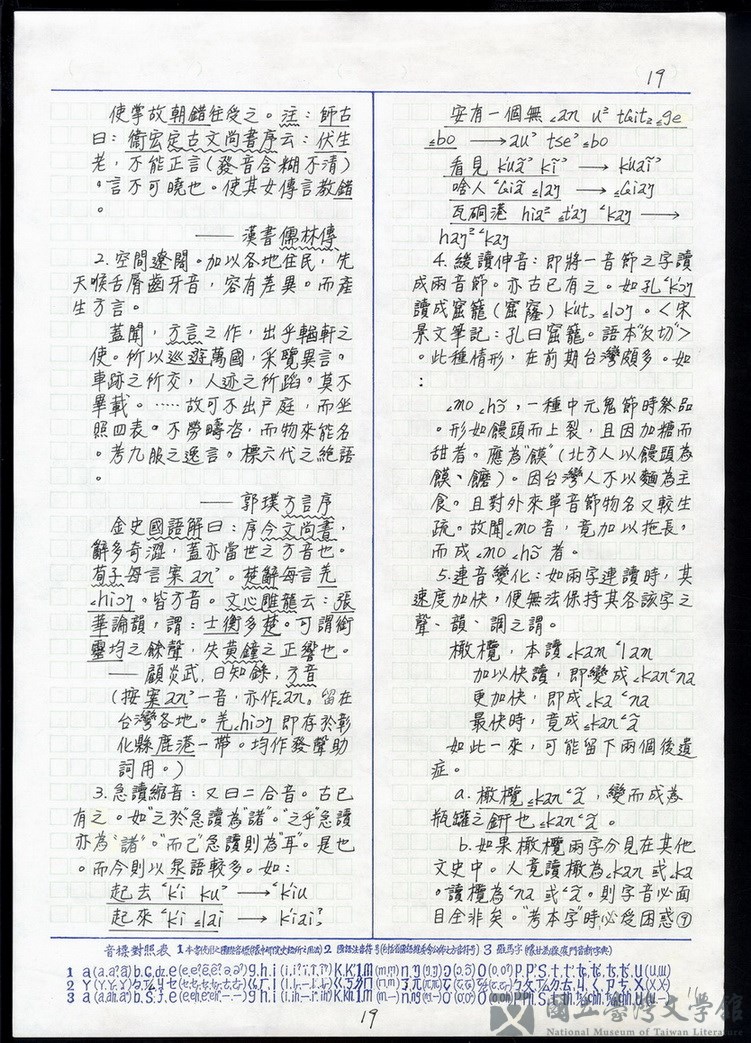 19
使掌故朝錯往受之。注：師古
曰：衞宏定古文尚書序云：伏生
老，不能正言(發音含糊不清)
。言不可曉也。使其女傳言教錯
。
——漢書儒林傳
2.空間遼闊。加以各地住民，先
天喉舌脣齒牙音，容有差異。而產
生方言。
蓋聞，方言之作，出乎輶軒之
使。所以巡遊萬國，采覽異言。
車跡之所交，人迹之所蹈。莫不
畢載。……故可不出戶庭，而坐
照四表。不勞疇咨，而物來能名
。考九服之逸言。標六代之絕語
。
——郭璞方言序
金史國語解曰：序今文尚書，
辭多奇澀，蓋亦當世之方音也。
荀子每言案an³。楚辭每言羌
꜀hiɔŋ。皆方音。文心雕龍云：張
華論韻，謂：士衡多楚。可謂銜
靈均之餘聲，失黃鐘之正響也。
——顧炎武，日知錄，方音
(按案an³一音，亦作꜀an。留在
台灣各地。羌꜀hiɔŋ即存於彰
化縣鹿港一帶。均作發聲助
詞用。)
3.急讀縮音：又曰二合音。古已
有之。如"之於"急讀為"諸"。"之乎"急讀
亦為"諸"。"而已"急讀則為"耳"。是也
。而今則以泉語較多。如：
起去 ꜂k'i ku³ → ꜂k'iu
起來 ꜂k'i ꜁lai → k'iai
安有一個無 ꜀an u² tɕit₂ ꜁ge
꜁bo → au³ tse³ ꜁bo
看見 k'uã³ kĩ³ → kuaĩ³
啥人 ꜂ɕiã ꜁laŋ → ꜁ɕiaŋ
瓦硐港 hia² ꜁taŋ ꜂kaŋ →
haŋ² ꜂kaŋ
4.緩讀伸音：即將一音節之字讀
成兩音節。亦古已有之。如孔꜂k'ɔŋ
讀成窟籠(窟窿)k'ut₂ ꜁lɔŋ。<宋
景文筆記：孔曰窟籠。語本反切>
。此種情形，在前期台灣頗多。如
：
꜀mo ꜀hɔ̃，一種中元鬼節時祭品
。形如饅頭而上裂，且因加糖而
甜者。應為"饃"(北方人以饅頭為
饃、饝)。因台灣人不以麵為主
食。且對外來單音節物名又較生
疏。故聞꜀mo音，竟加以拖長，
而成꜀mo ꜀hɔ̃者。
5.連音變化：如兩字連讀時，其
速度加快，便無法保持其各該字之
聲、韻、調之謂。
橄欖，本讀꜀kam ꜂lam
加以快讀，即變成꜀kan꜂na
更加快，即成꜀ka ꜂na
最快時，竟成꜁kan꜂ã
如此一來，可能留下兩個後遺
症。
a.橄欖꜁kan꜂ã，變而成為
瓶罐之鉼也꜁kan꜂ã。
b.如果橄欖兩字分見在其他
文史中。人竟讀橄為꜀kan或꜀ka
。讀欖為꜂na或꜂ã。則字音必面
目全非矣。"考本字"時必受困惑
音標對照表
19
國立臺灣文學館
National Museum of Taiwan Literature